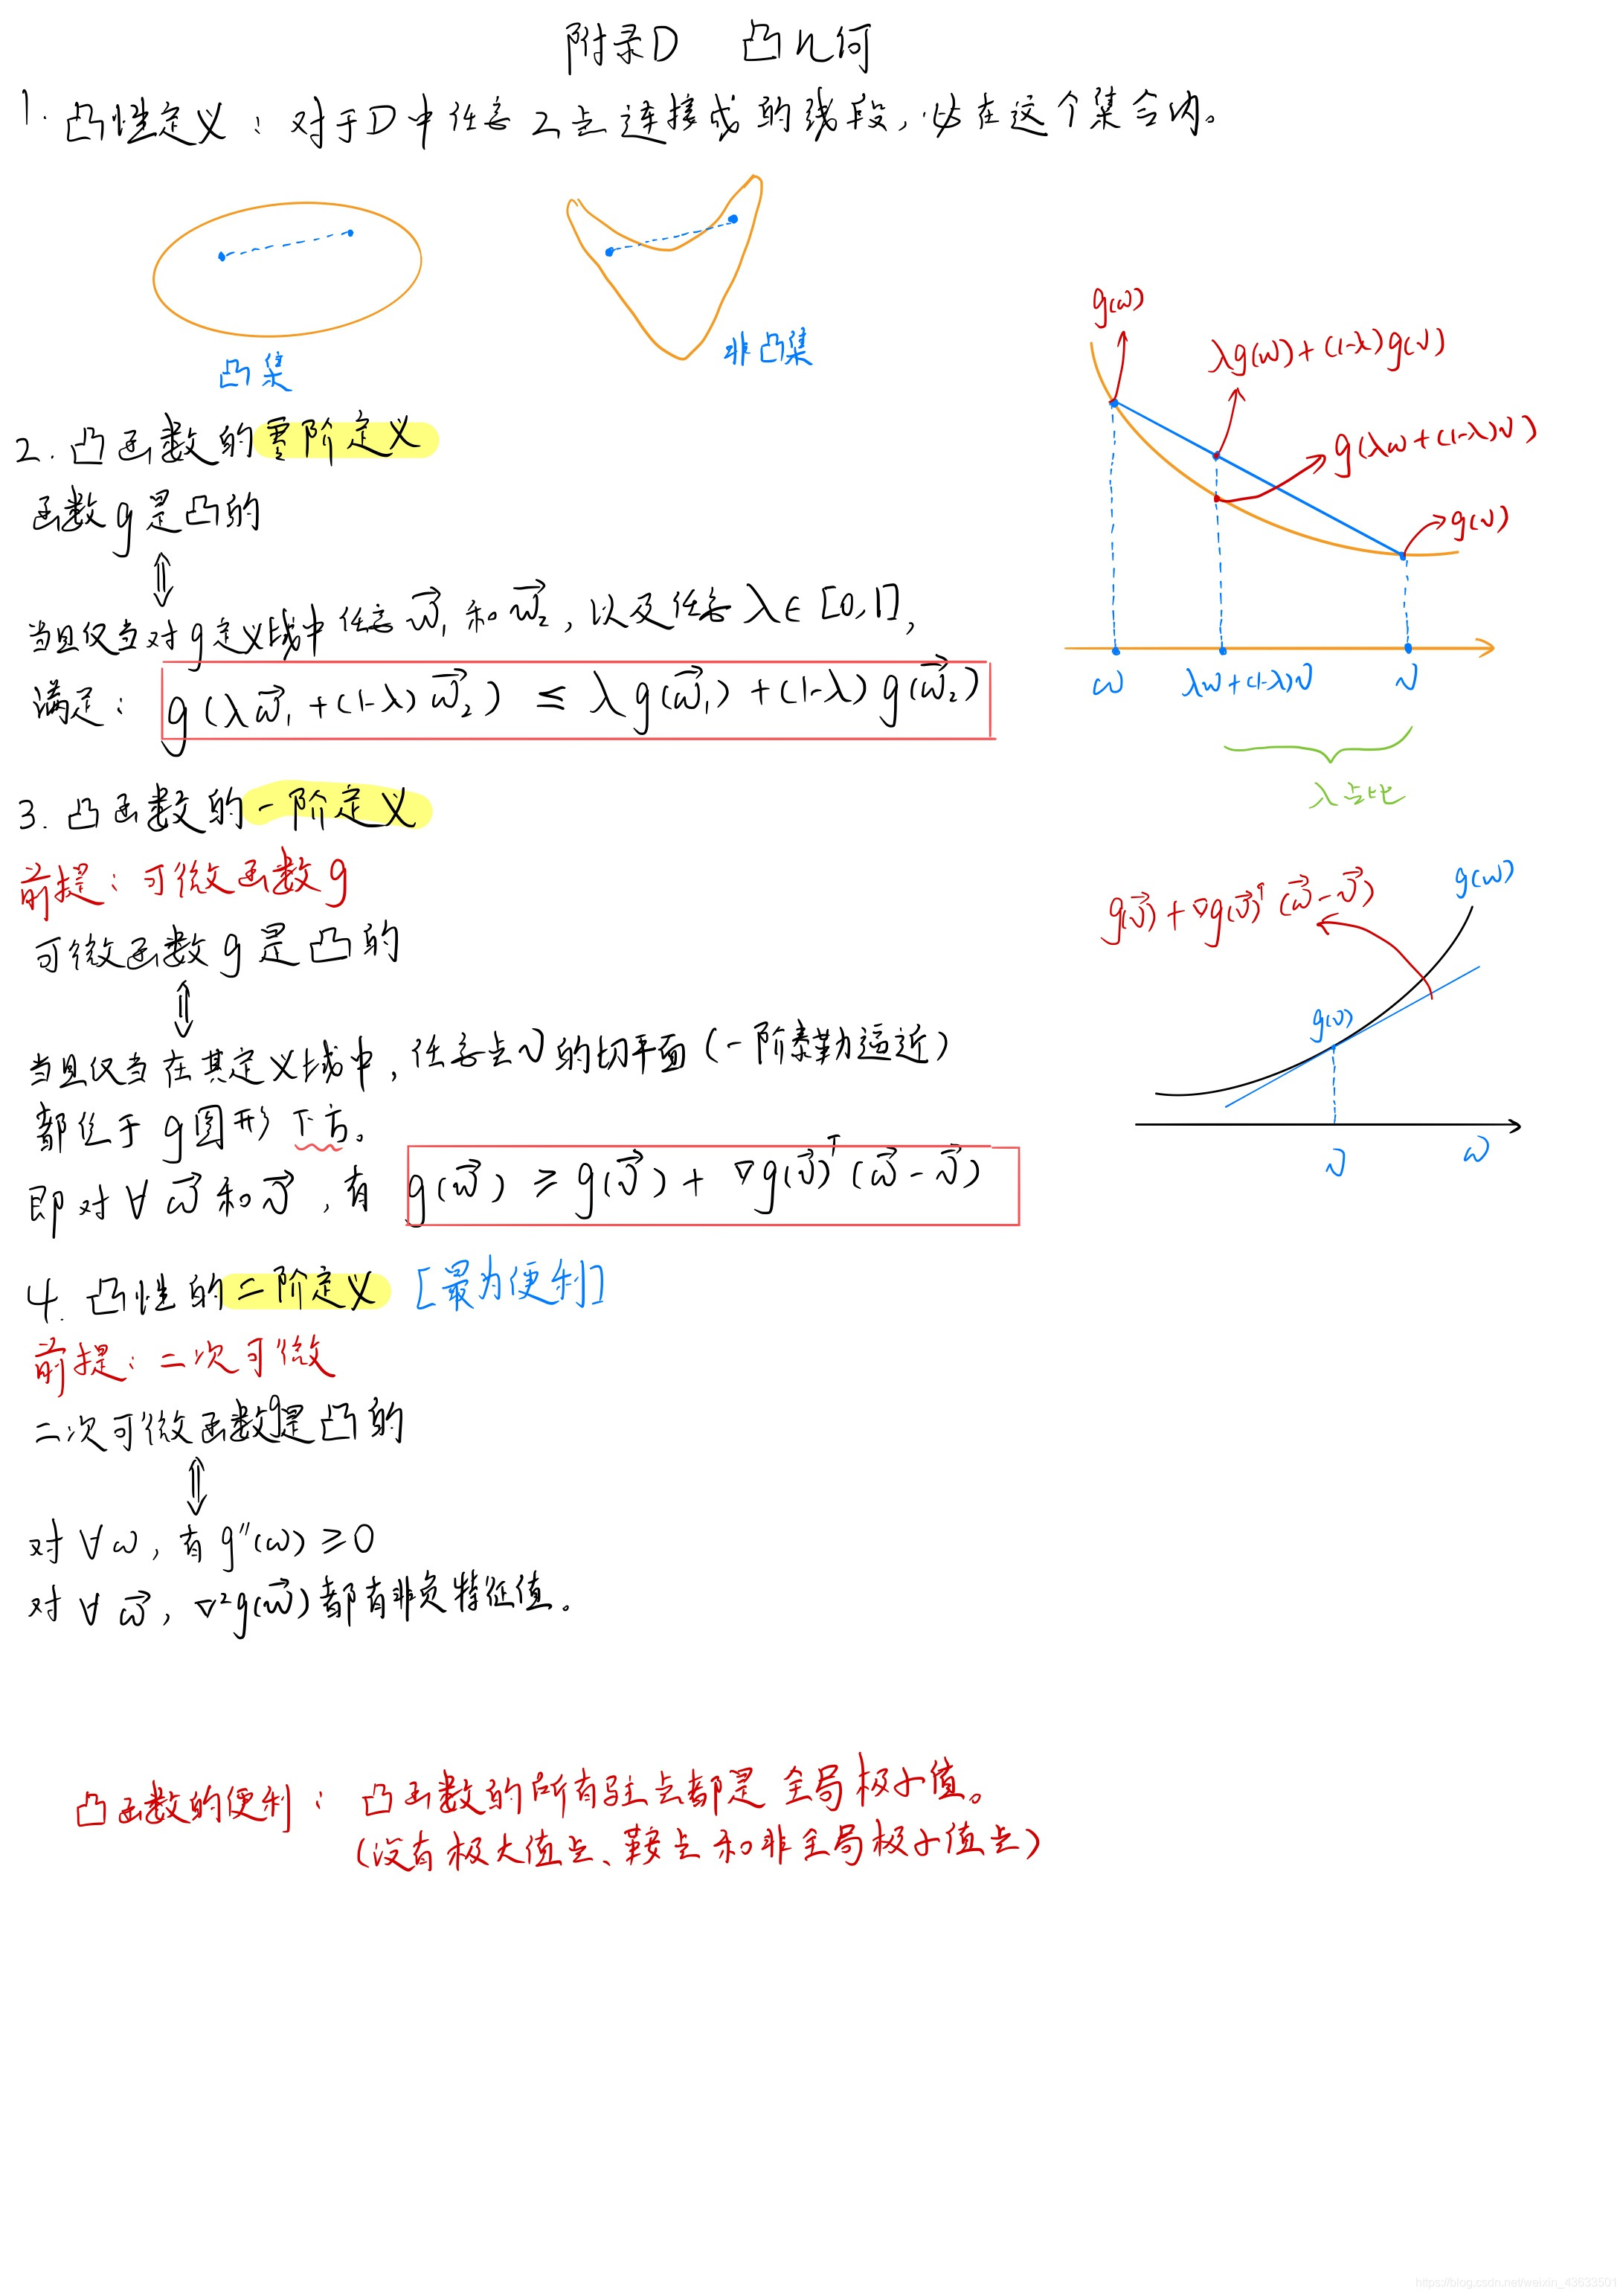 附录D 凸几何
1. 凸性定义：对于D中任意2点连接成的线段，必在这个集合内。
凸集
非凸集
2. 凸函数的零阶定义
函数g是凸的
⇕
当且仅当对g定义域中任意w⃗₁和w⃗₂，以及任意λ∈[0,1],
满足： g(λw⃗₁+(1-λ)w⃗₂) ≤ λg(w⃗₁)+(1-λ)g(w⃗₂)
g(w)
λg(w)+(1-λ)g(v)
g(λw+(1-λ)v)
g(v)
w λw+(1-λ)v v
λ占比
3. 凸函数的一阶定义
前提：可微函数g
可微函数g是凸的
⇕
当且仅当在其定义域中，任意点v的切平面(一阶泰勒逼近)
都位于g图形下方。
即对∀w⃗和v⃗，有 g(w⃗) ≥ g(v⃗)+∇g(v⃗)ᵀ(w⃗-v⃗)
g(v⃗)+∇g(v⃗)ᵀ(w⃗-v⃗)
g(w)
g(v)
v w
4. 凸性的二阶定义 [最为便利]
前提：二次可微
二次可微函数g是凸的
⇕
对∀w，有g″(w)≥0
对∀w⃗，∇²g(w⃗)都有非负特征值。
凸函数的便利：凸函数的所有驻点都是全局极小值。
(没有极大值点、鞍点和非全局极小值点)
https://blog.csdn.net/weixin_43633501